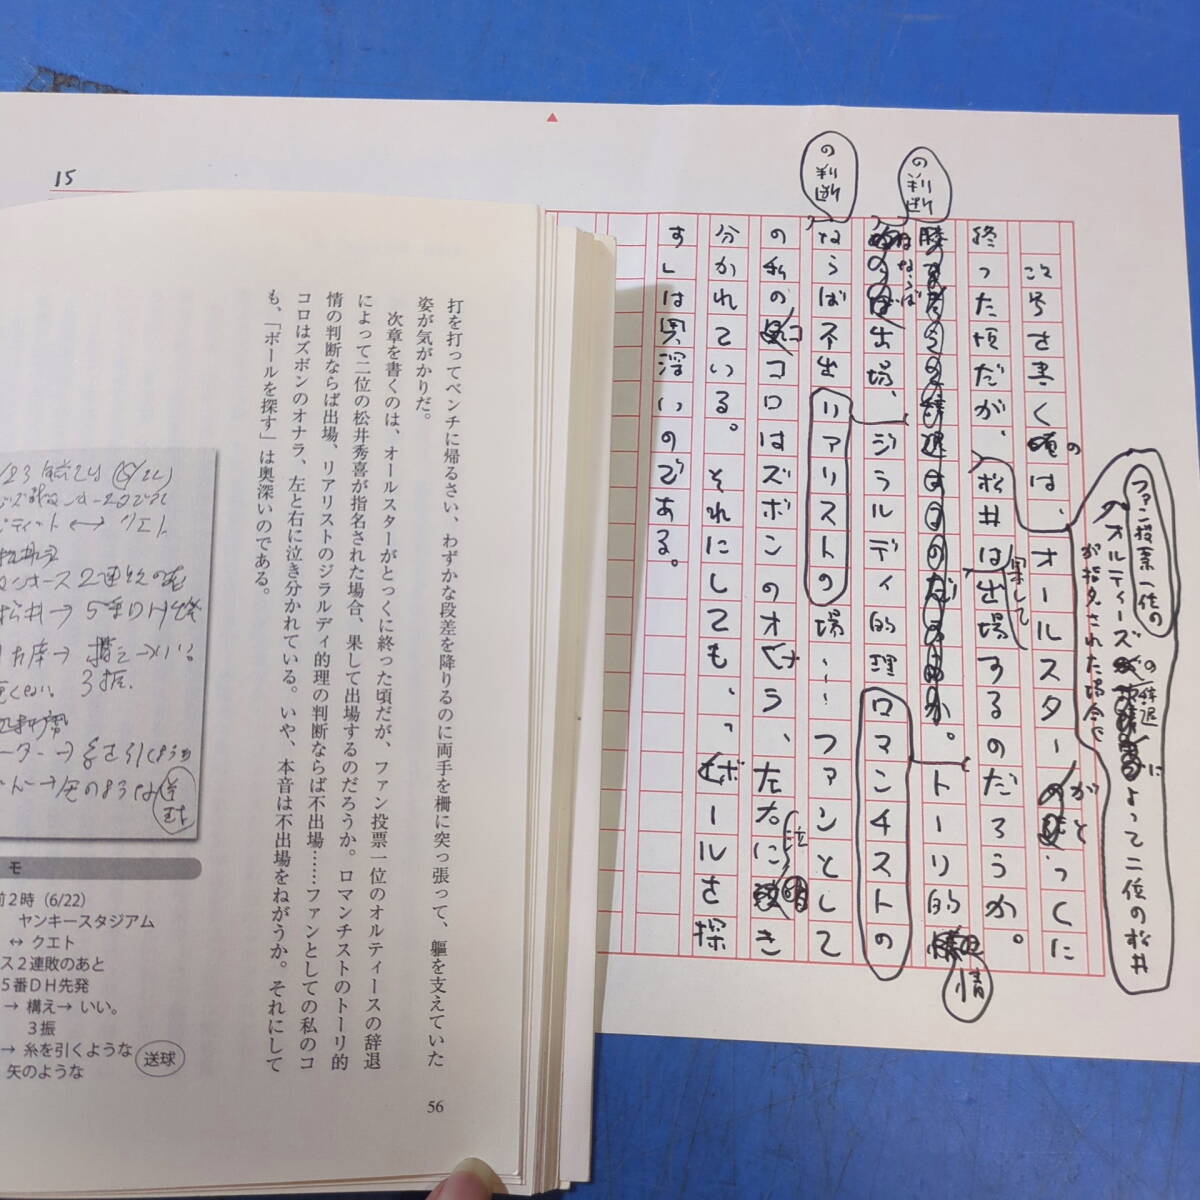 の判断
の判断
ファン投票一位の
オルティーズ
の辞退
によって二位の松井
が指名された場合、
次号を書く頃は、オールスターがとっくに
終った頃だが、松井は果して出場するのだろうか。
トーリ的
情
ならば
出場、ジラルディ的理
ロマンチストの
ならば不出場……ファンとして
リアリストの
の私のココロはズボンのオナラ、左右に泣き
分かれている。それにしても、、ボールを探
す」は奥深いのである。
15
打を打ってベンチに帰るさい、わずかな段差を降りるのに両手を柵に突っ張って、軀を支えていた
姿が気がかりだ。
次章を書くのは、オールスターがとっくに終った頃だが、ファン投票一位のオルティースの辞退
によって二位の松井秀喜が指名された場合、果して出場するのだろうか。ロマンチストのトーリ的
情の判断ならば出場、リアリストのジラルディ的理の判断ならば不出場……ファンとしての私のコ
コロはズボンのオナラ、左と右に泣き分かれている。いや、本音は不出場をねがうか。それにして
も、「ボールを探す」は奥深いのである。
56
ティット ←→ クエト
2連敗のあと
松井→5番DH先発
構え→いい。
3振。
糸を引くような
矢のような
送球
モ
前2時（6/22）
ヤンキースタジアム
↔ クエト
ス2連敗のあと
5番DH先発
→ 構え→ いい。
3振
→ 糸を引くような
送球
矢のような